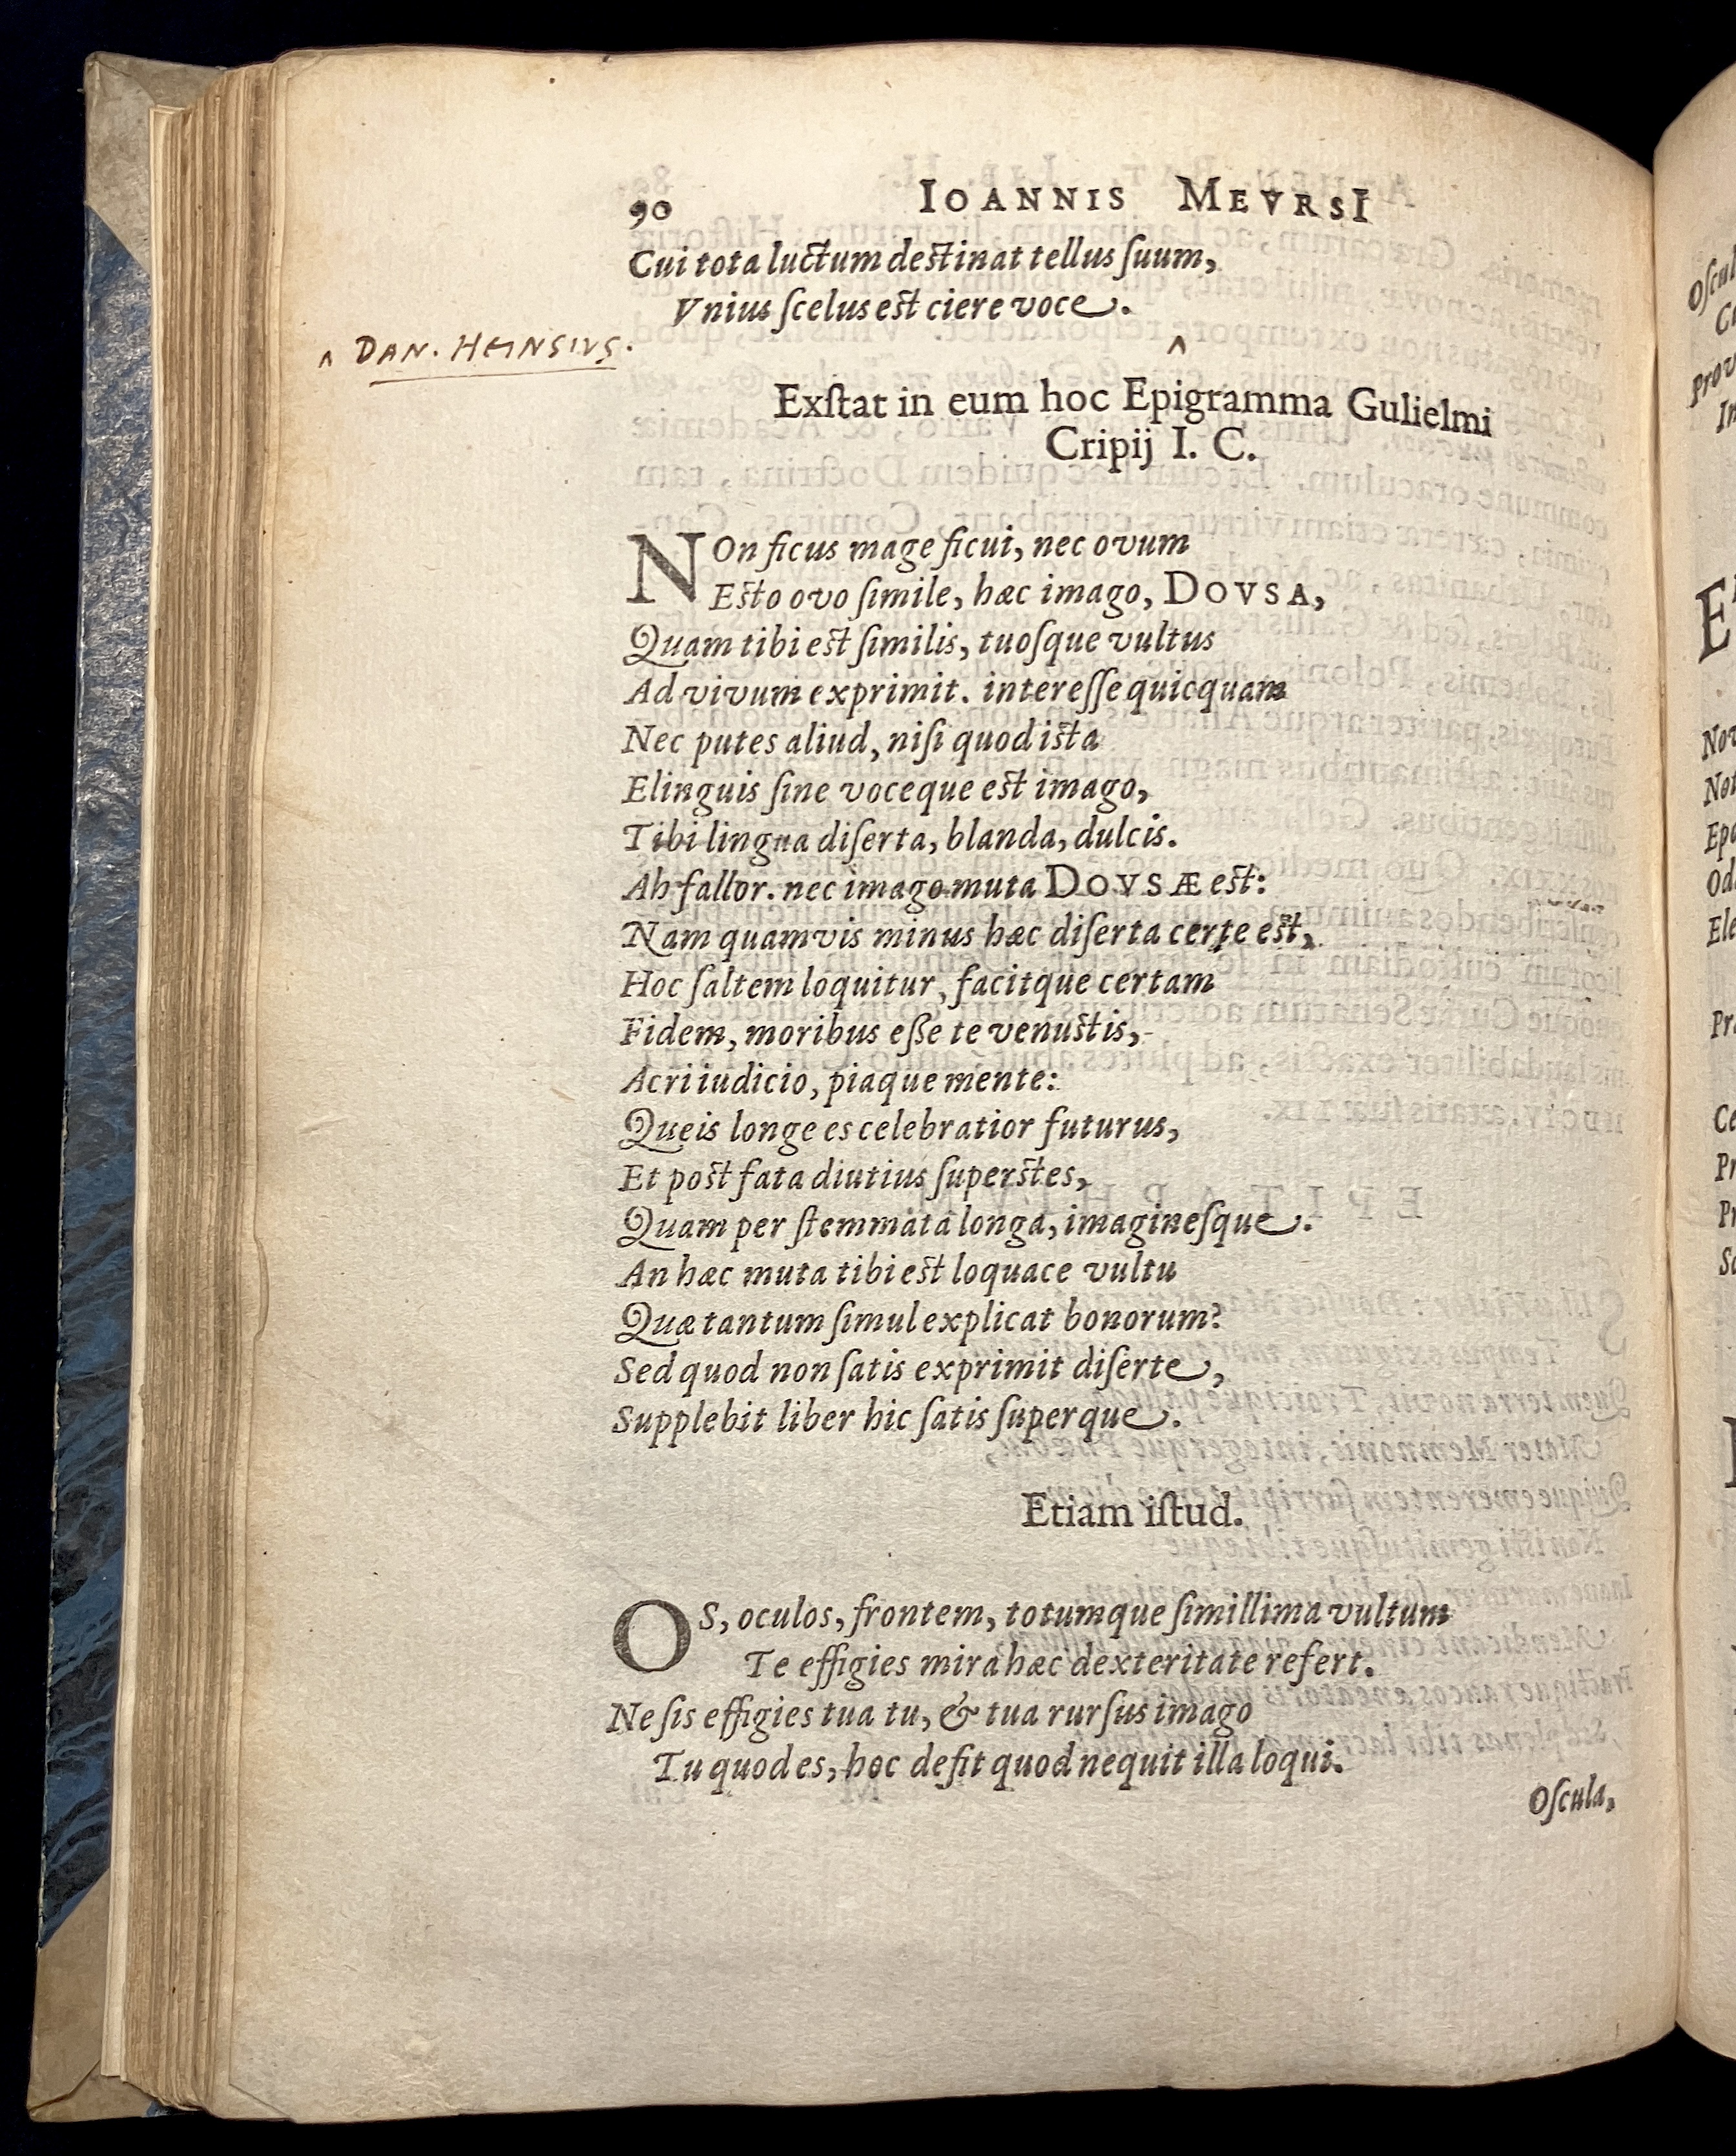 90 IOANNIS MEVRSI
Cui tota luctum destinat tellus ſuum,
Vnius ſcelus est ciere voce.
^ DAN. HEINSIVS. ^
Exſtat in eum hoc Epigramma Gulielmi
Cripij I. C.
NOn ficus mage ficui, nec ovum
Esto ovo ſimile, hæc imago, DOVSA,
Quam tibi est ſimilis, tuoſque vultus
Ad vivum exprimit. intereſſe quicquam
Nec putes aliud, niſi quod ista
Elinguis ſine voceque est imago,
Tibi lingua diſerta, blanda, dulcis.
Ah fallor. nec imago muta DOVSÆ est:
Nam quamvis minus hæc diſerta certe est,
Hoc ſaltem loquitur, facitque certam
Fidem, moribus eſſe te venustis,
Acri iudicio, piaque mente:
Queis longe es celebratior futurus,
Et post fata diutius ſuperstes,
Quam per ſtemmata longa, imagineſque.
An hæc muta tibi est loquace vultu
Quæ tantum ſimul explicat bonorum?
Sed quod non ſatis exprimit diſerte,
Supplebit liber hic ſatis ſuperque.
Etiam iſtud.
OS, oculos, frontem, totumque ſimillima vultum
Te effigies mira hæc dexteritate refert.
Ne ſis effigies tua tu, & tua rurſus imago
Tu quod es, hoc defit quod nequit illa loqui.
Oſcula,